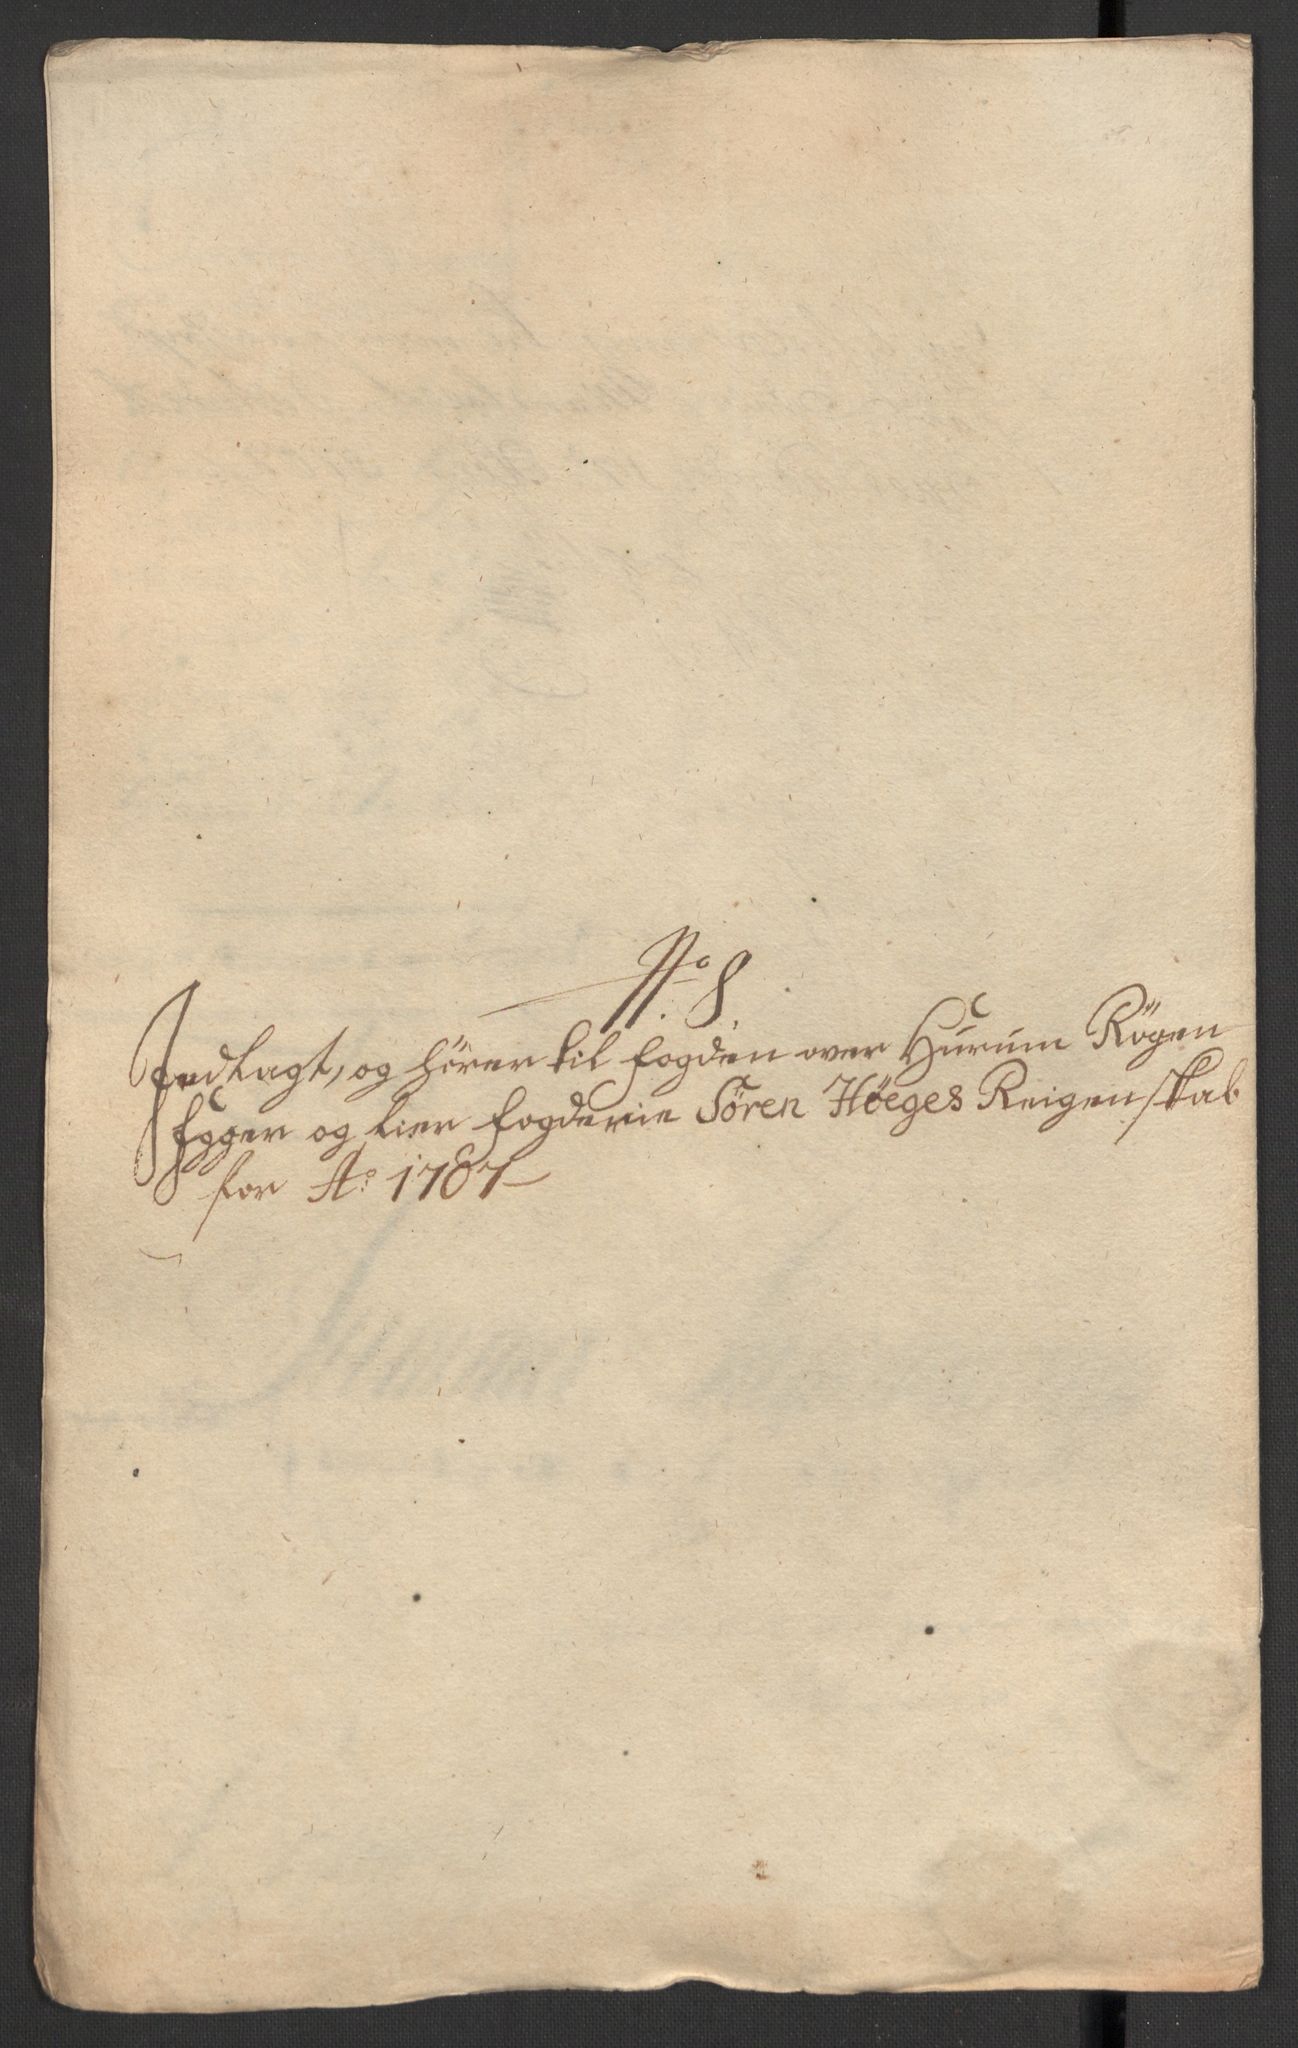 No 8.
Indlagt, og hører til fogden over Hurum Røgen
Egger og Lier fogderie Søren Høeges Reigenskab
for Ao 1707